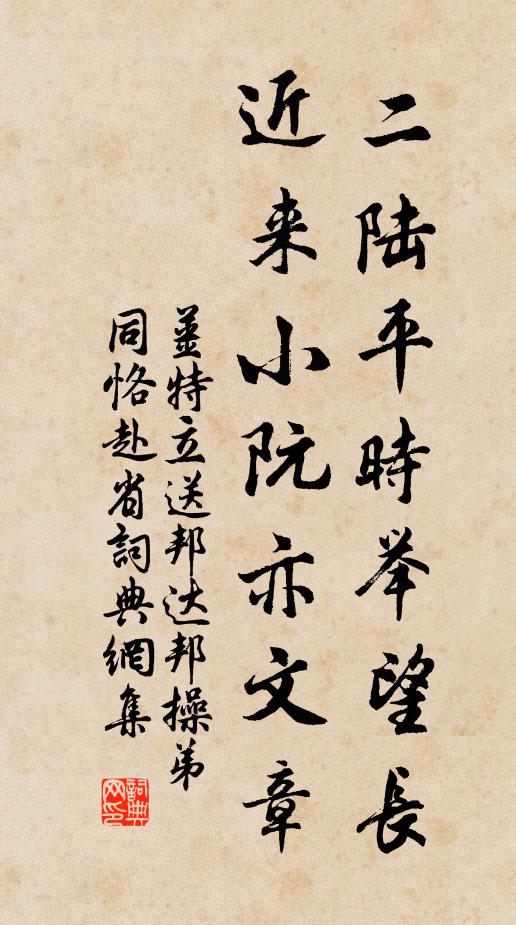 二陆平時举望長
近来小阮亦文章
薑特立送邦达邦操弟
同恪赴省詞典網集
詞典网印